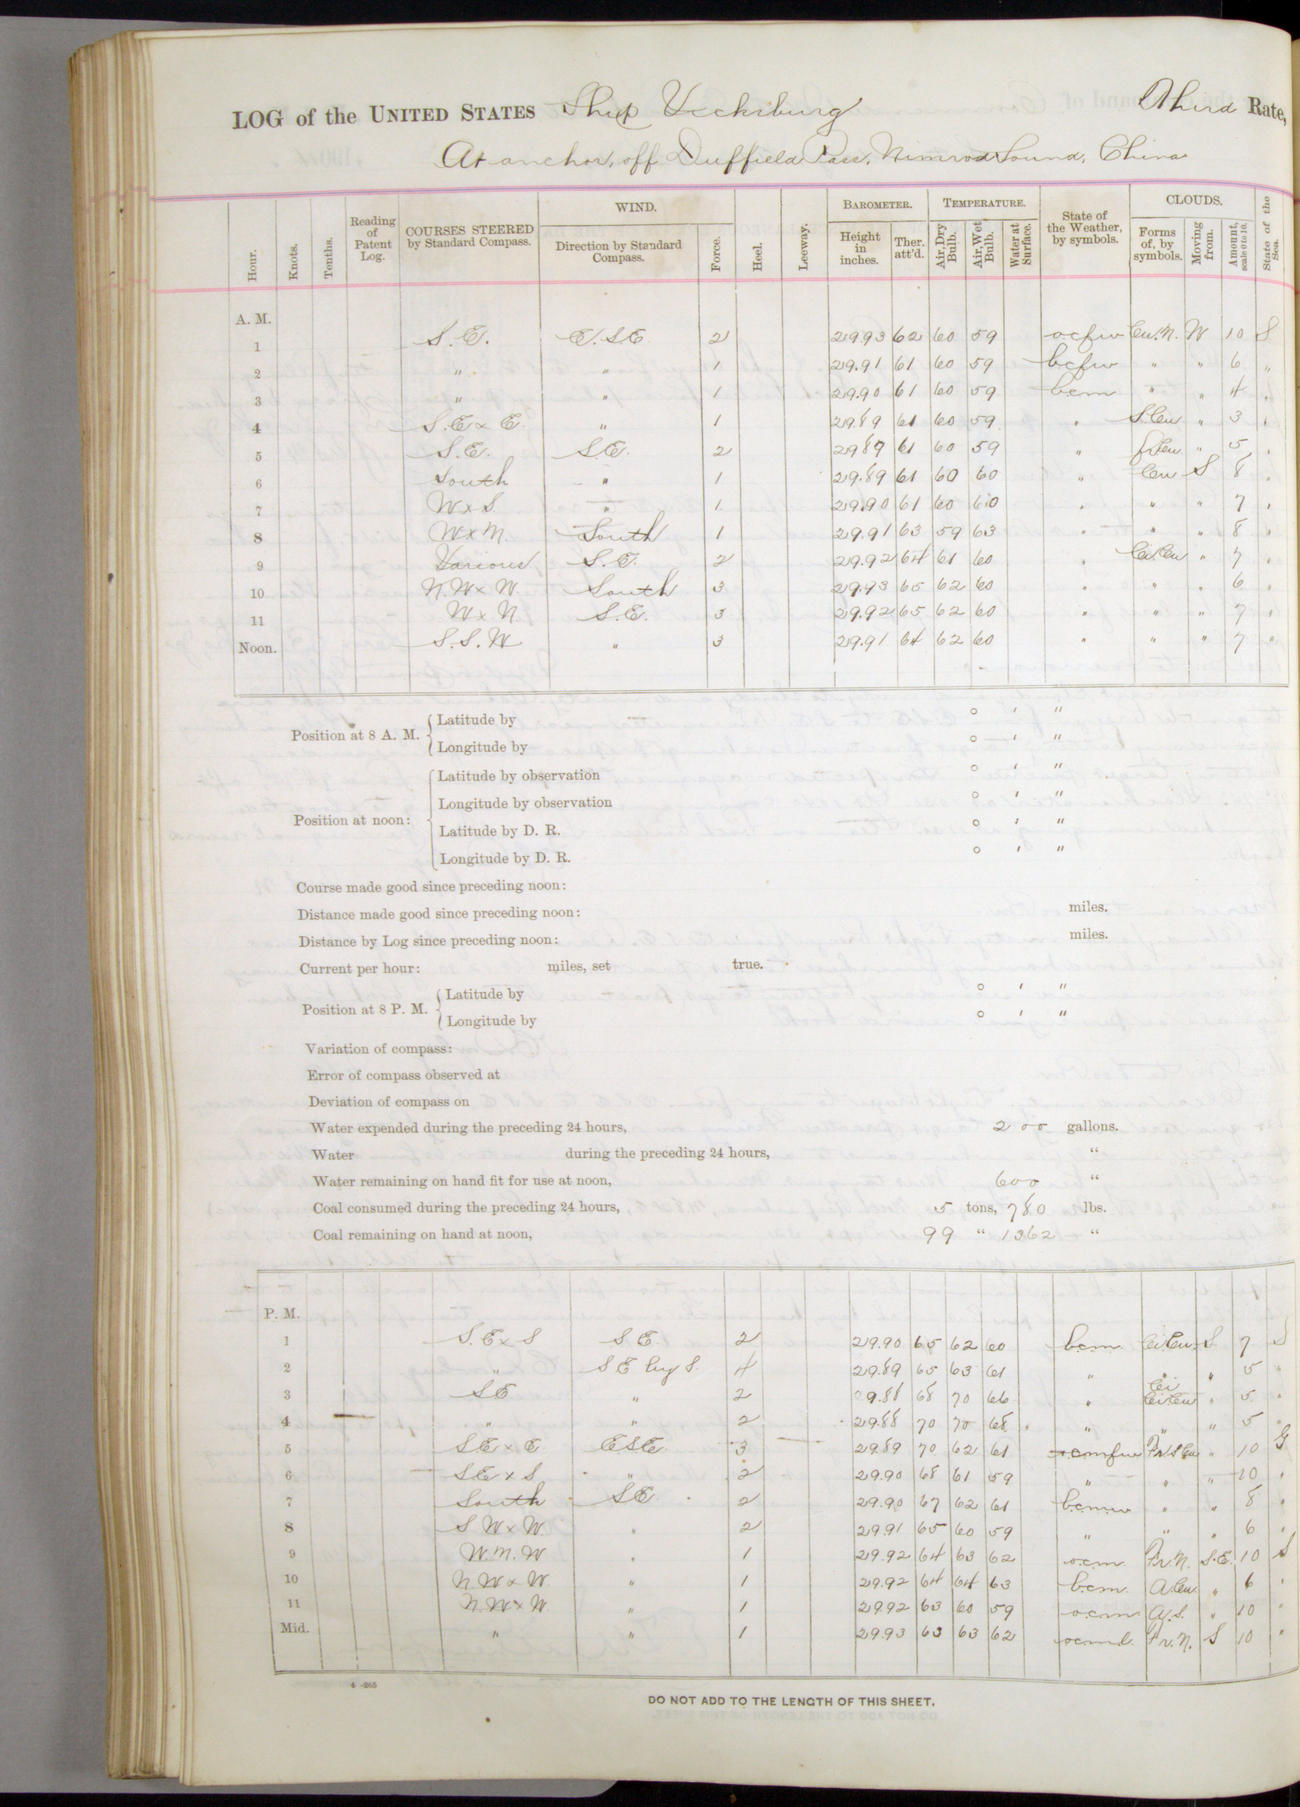 LOG of the UNITED STATES Ship Vicksburg Third Rate,
At anchor, off Duffield Pass, Nimrod Sound, China
Hour. Knots. Tenths. Reading of Patent Log. COURSES STEERED by Standard Compass. WIND. Direction by Standard Compass. Force. Heel. Leeway. BAROMETER. Height in inches. Ther. att'd. TEMPERATURE. Air, Dry Bulb. Air, Wet Bulb. Water at Surface. State of the Weather, by symbols. CLOUDS. Forms of, by symbols. Moving from. Amount, scale 0 to 10. State of the Sea.
A. M.
1 S.E. E.SE 2 29.93 62 60 59 ocfw Cu.N. W 10 S
2 " " 1 29.91 61 60 59 bcfw " " 6 "
3 " " 1 29.90 61 60 59 bcm " " 4 "
4 S.E x E. " 1 29.89 61 60 59 " S.Cu " 3 "
5 S.E. S.E. 2 29.87 61 60 59 " Cu " 5 "
6 South " 1 29.89 61 60 60 " Cu S 8 "
7 W x S. " 1 29.90 61 60 60 " " " 7 "
8 W x N. South 1 29.91 63 59 63 " " " 8 "
9 Various S.E. 2 29.92 64 61 60 " Ci.Cu " 7 "
10 N.W x W. South 3 29.93 65 62 60 " " " 6 "
11 W x N. S.E. 3 29.92 65 62 60 " " " 7 "
Noon. S.S.W " 3 29.91 64 62 60 " " " 7 "
Position at 8 A. M. Latitude by ° ′ ″
Longitude by ° ′ ″
Position at noon: Latitude by observation ° ′ ″
Longitude by observation ° ′ ″
Latitude by D. R. ° ′ ″
Longitude by D. R. ° ′ ″
Course made good since preceding noon:
Distance made good since preceding noon: miles.
Distance by Log since preceding noon: miles.
Current per hour: miles, set true.
Position at 8 P. M. Latitude by ° ′ ″
Longitude by ° ′ ″
Variation of compass:
Error of compass observed at
Deviation of compass on
Water expended during the preceding 24 hours, 200 gallons.
Water during the preceding 24 hours, "
Water remaining on hand fit for use at noon, 600 "
Coal consumed during the preceding 24 hours, 5 tons, 780 lbs.
Coal remaining on hand at noon, 99 " 1362 "
P. M.
1 S.E x S S E 2 29.90 65 62 60 bcm Ci.Cu. S 7 S
2 " S E by S. 4 29.89 65 63 61 " " " 5 "
3 S E " 2 29.88 68 70 66 " Ci Ci Cu " 5 "
4 " " 2 29.88 70 70 68 " " " 5 "
5 S E x E E S E 3 29.89 70 62 61 ocmfw Fr. S Cu " 10 G
6 S E x S " 2 29.90 68 61 59 " " " 10 "
7 South S E 2 29.90 67 62 61 bcmw " " 8 "
8 S W x W. " 2 29.91 65 60 59 " " " 6 "
9 W.N.W " 1 29.92 64 63 62 ocm Fr.N. S.E. 10 S
10 N.W x W. " 1 29.92 64 64 63 bcm A.Cu " 6 "
11 N.W x W. " 1 29.92 63 60 59 ocm A.S. " 10 "
Mid. " " 1 29.93 63 63 62 ocmd Fr.N. S 10 "
4—265
DO NOT ADD TO THE LENGTH OF THIS SHEET.